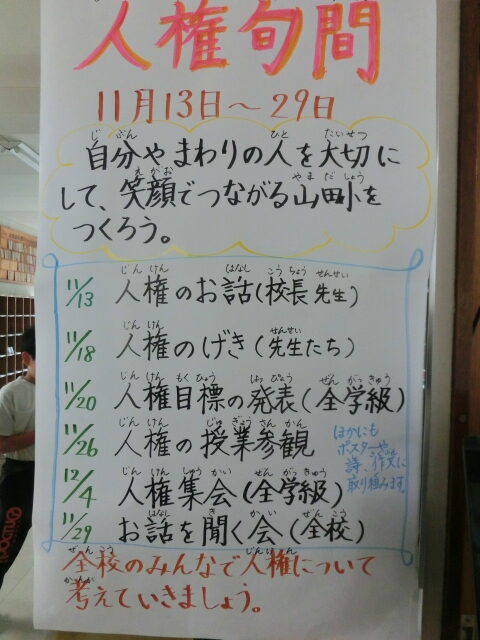 人権旬間
11月13日～29日
自分やまわりの人を大切に
して、笑顔でつながる山田小を
つくろう。
11/13 人権のお話(校長先生)
11/18 人権のげき(先生たち)
11/20 人権目標の発表(全学級)
11/26 人権の授業参観
12/4 人権集会(全学級)
11/29 お話を聞く会(全校)
ほかにも
ポスターや
詩、作文に
取り組みます。
全校のみんなで人権について
考えていきましょう。